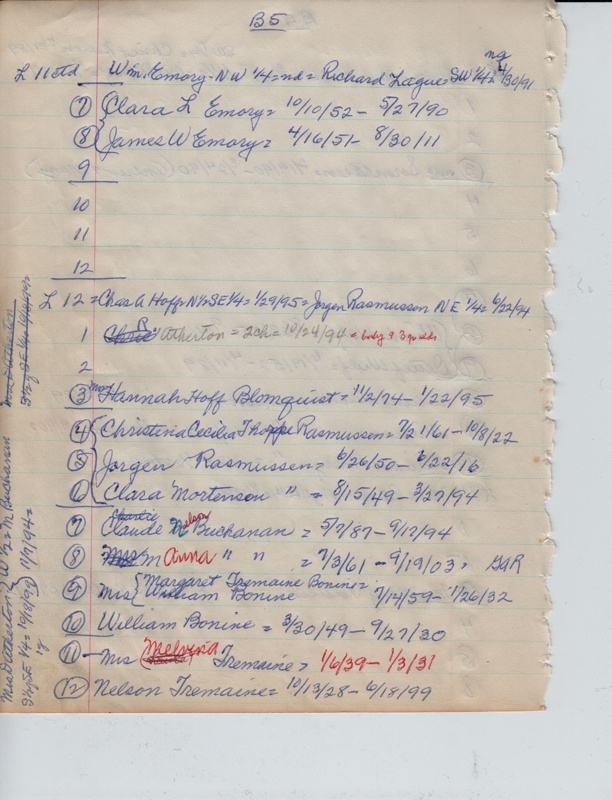 B5
L 11 std Wm. Emory - NW 1/4 = nd = Richard League = SW 1/4 = 4/30/91
ng
7 Clara L Emory = 10/10/52 - 5/27/90
8 James W Emory = 4/16/51 - 8/30/11
9
10
11
12
L 12 = Chas A Hoff N½ SE 1/4 = 1/29/95 = Jorgen Rasmussen NE 1/4 = 6/22/94
1 R Atherton = 2ch = 10/24/94 = baby & 3 yr olds
2
3 Mrs Hannah Hoff Blomquist = 11/2/74 - 1/22/95
4 Christina Cecilia Rasmussen = 7/21/61 - 10/8/22
5 Jorgen Rasmussen = 6/26/50 - 6/22/16
6 Clara Mortenson " = 8/15/49 - 3/27/94
Charlie
7 Claude Nelson Buchanan = 5/7/87 - 9/17/94
8 Mrs M Anna " " = 7/3/61 - 9/19/03, GAR
9 Mrs { Margaret Tremaine Bonine =
William Bonine 7/14/59 - 1/26/32
10 William Bonine = 3/30/49 - 9/27/30
11 - Mrs Melvina Tremaine > 1/6/39 - 1/3/31
12 Nelson Tremaine = 10/13/28 - 6/18/99
Mrs D Atherton
W ½ = M Buchanan 11/7/94 =